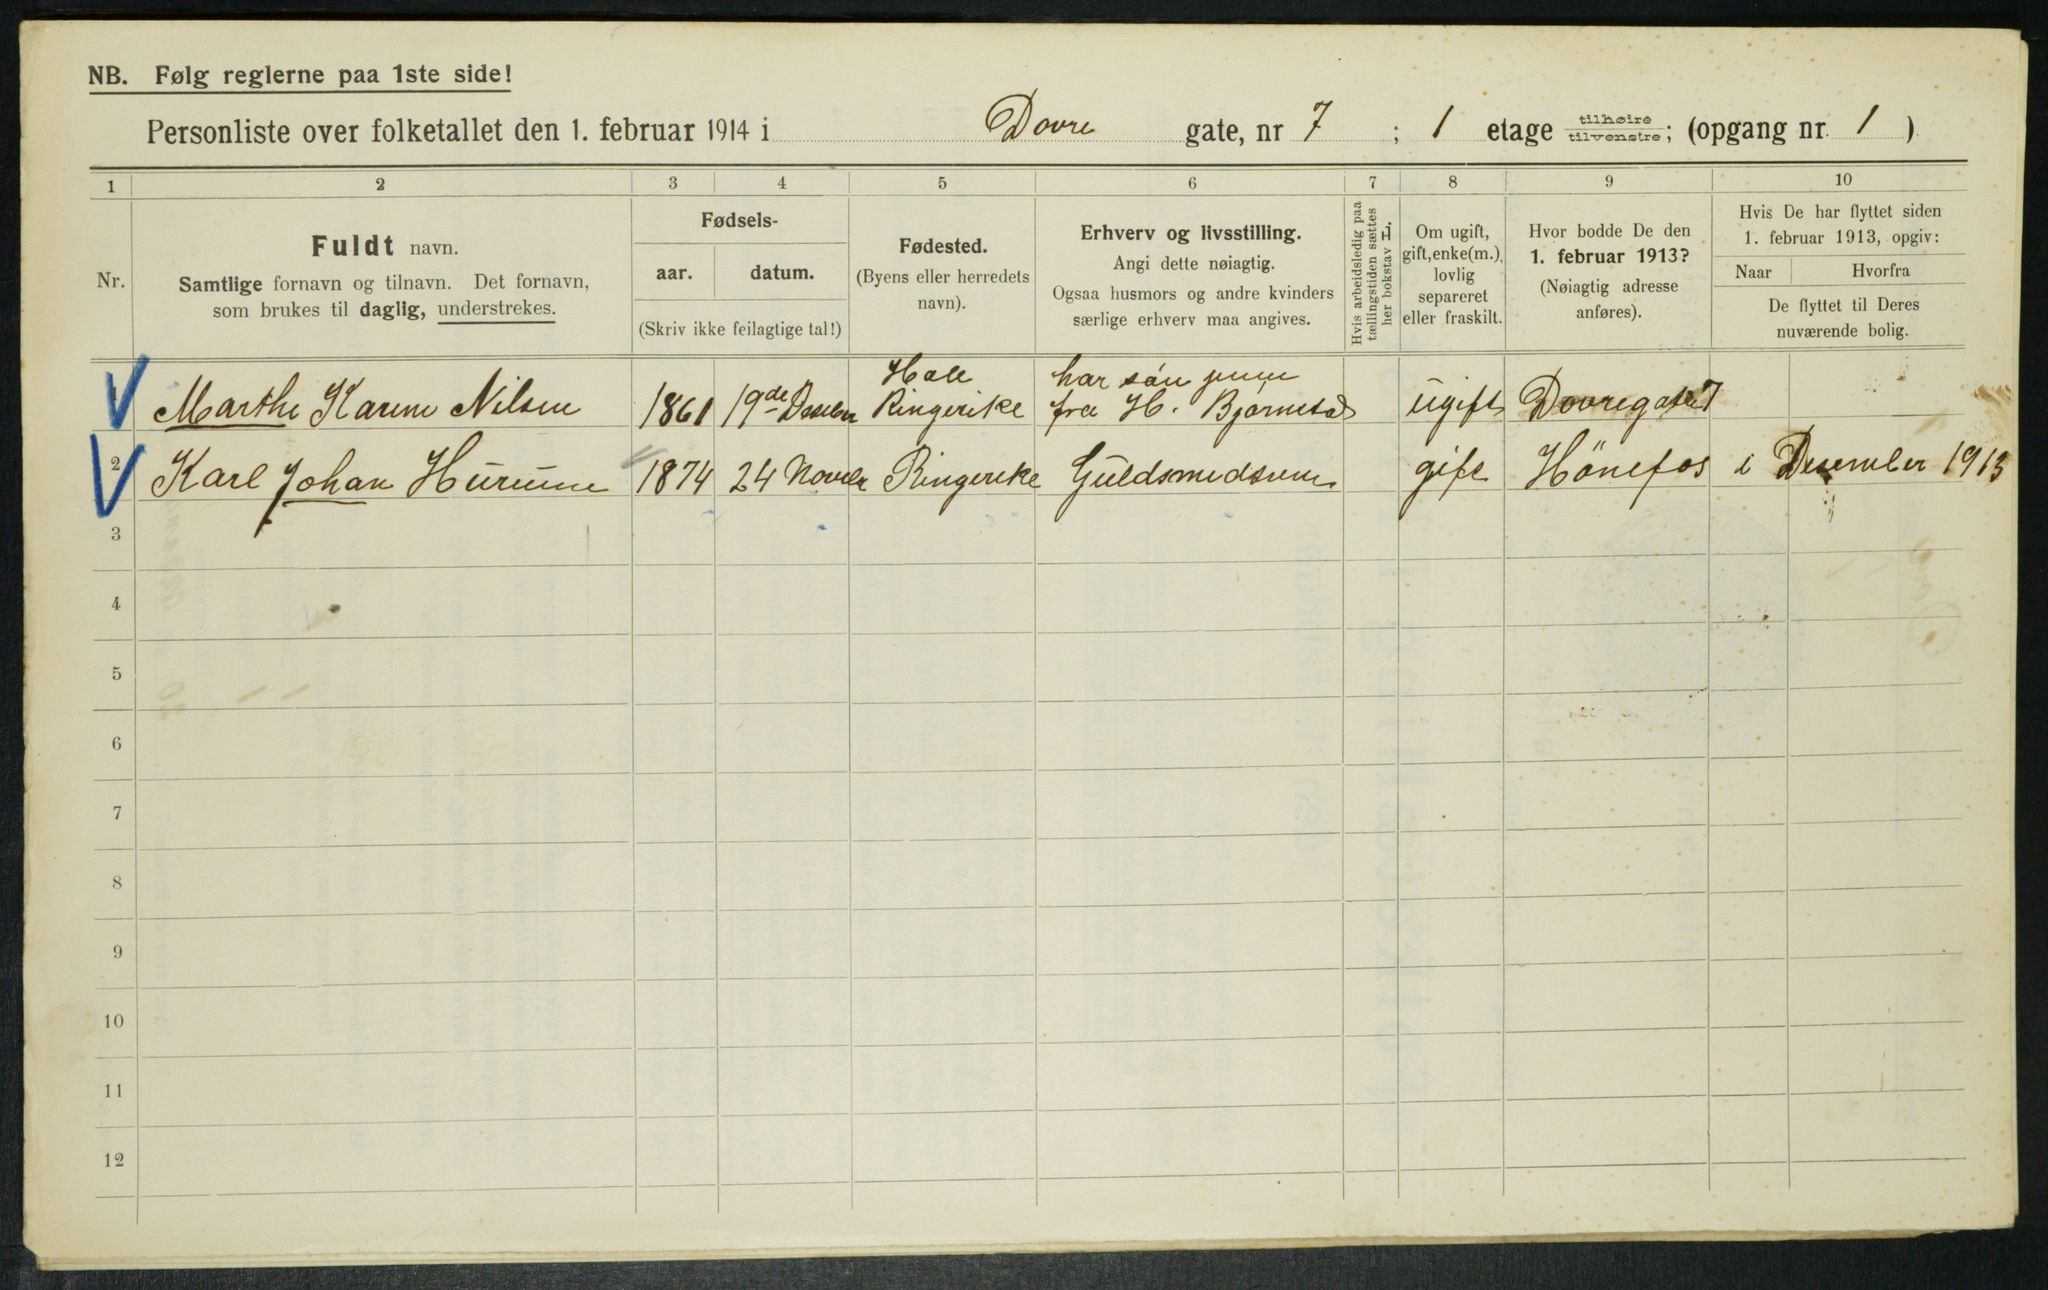 NB. Følg reglerne paa 1ste side!
Personliste over folketallet den 1. februar 1914 i Dovre gate, nr 7 ; 1 etage tilhøire tilvenstre; (opgang nr. 1 )
1 2 3 4 5 6 7 8 9 10
Nr.
Fuldt navn.
Samtlige fornavn og tilnavn. Det fornavn,
som brukes til daglig, understrekes.
Fødsels-
aar. datum.
(Skriv ikke feilagtige tal!)
Fødested.
(Byens eller herredets
navn).
Erhverv og livsstilling.
Angi dette nøiagtig.
Ogsaa husmors og andre kvinders
særlige erhverv maa angives.
Hvis arbeidsledig paa
tællingstiden sættes
her bokstav L.
Om ugift,
gift, enke(m.),
lovlig
separeret
eller fraskilt.
Hvor bodde De den
1. februar 1913?
(Nøiagtig adresse
anføres).
Hvis De har flyttet siden
1. februar 1913, opgiv:
Naar Hvorfra
De flyttet til Deres
nuværende bolig.
Hole har søm
Marthe Karine Nilsen 1861 19de Ringerike fra H. ugift Dovregate 7
2 Karl Johan Hurum 1874 24 Ringerike gift Hönefos i Desember 1913
3
4
5
6
7
8
9
10
11
12